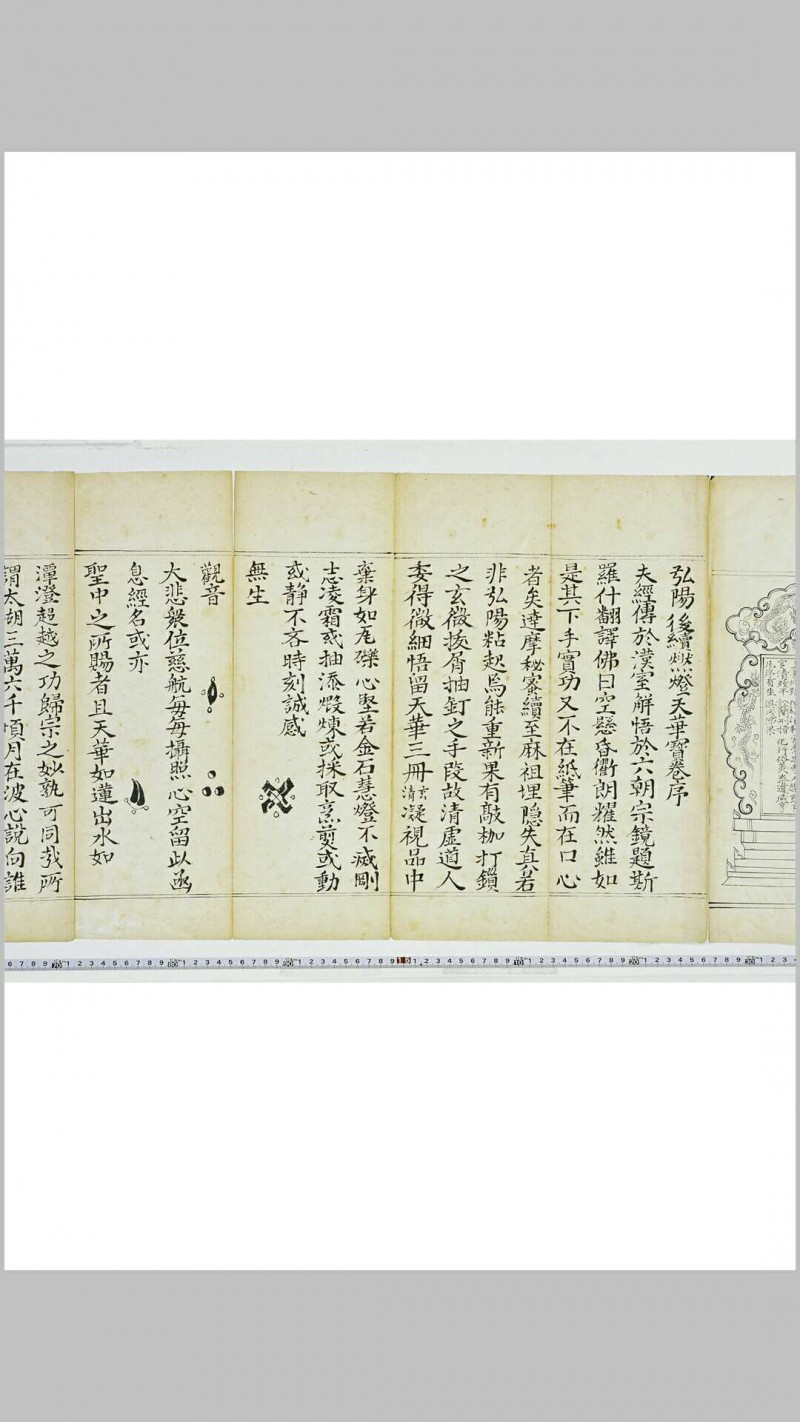 弘陽後續燃燈天華寶卷序
夫經傳於漢室解悟於六朝宗鏡題斯
羅什翻譯佛曰空懸昏衢朗耀然雖如
是其下手實功又不在紙筆而在口心
者矣達摩秘密續至麻祖埋隐失真若
非弘陽粘起焉能重新果有敲枷打鎖
之玄微拔屑抽釘之手段故清虛道人
委得微細悟留天華三冊玄清凝視品中
棄身如瓦礫心堅若金石慧燈不滅剛
志凌霜或抽添煅煉或採取烹煎或動
或静不吝時刻誠感
無生
觀音
大悲衆位慈航每每攝照心空留此函
息經名或亦
聖中之所賜者且天華如蓮出水如
潭澄超越之功歸宗之妙孰可同哉所
謂太胡三萬六千頃月在波心説向誰